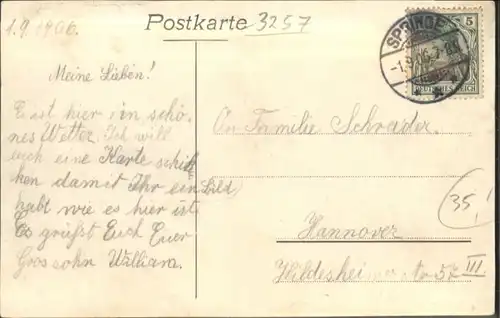 1.9.1906.
Postkarte 3257
SPRINGE
-1.9.06.7-8N
5
DEUTSCHES REICH
Meine Lieben!
Es ist hier ein schö-
nes Wetter. Ich will
euch eine Karte schik
ken damit Ihr ein Bild
habt wie es hier ist
Es grüßst Euch Euer
Grossohn William.
An Familie Schrader.
35!
Hannover
Hildesheimer str 57 III.